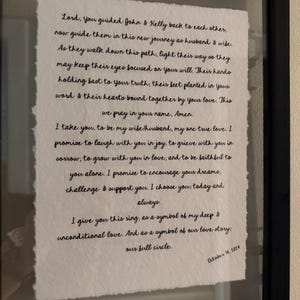 Lord, you guided John & Kelly back to each other,
now guide them in this new journey as husband & wife.
As they walk down this path, light their way so they
may keep their eyes focused on your will. Their hands
holding fast to your truth, their feet planted in your
word & their hearts bound together by your love. This
we pray in your name, Amen.
I take you, to be my wife/husband, my one true love. I
promise to laugh with you in joy, to grieve with you in
sorrow, to grow with you in love, and to be faithful to
you alone. I promise to encourage your dreams,
challenge & support you. I choose you, today and
always.
I give you this ring, as a symbol of my deep &
unconditional love. And as a symbol of our love story;
our full circle.
October 14,